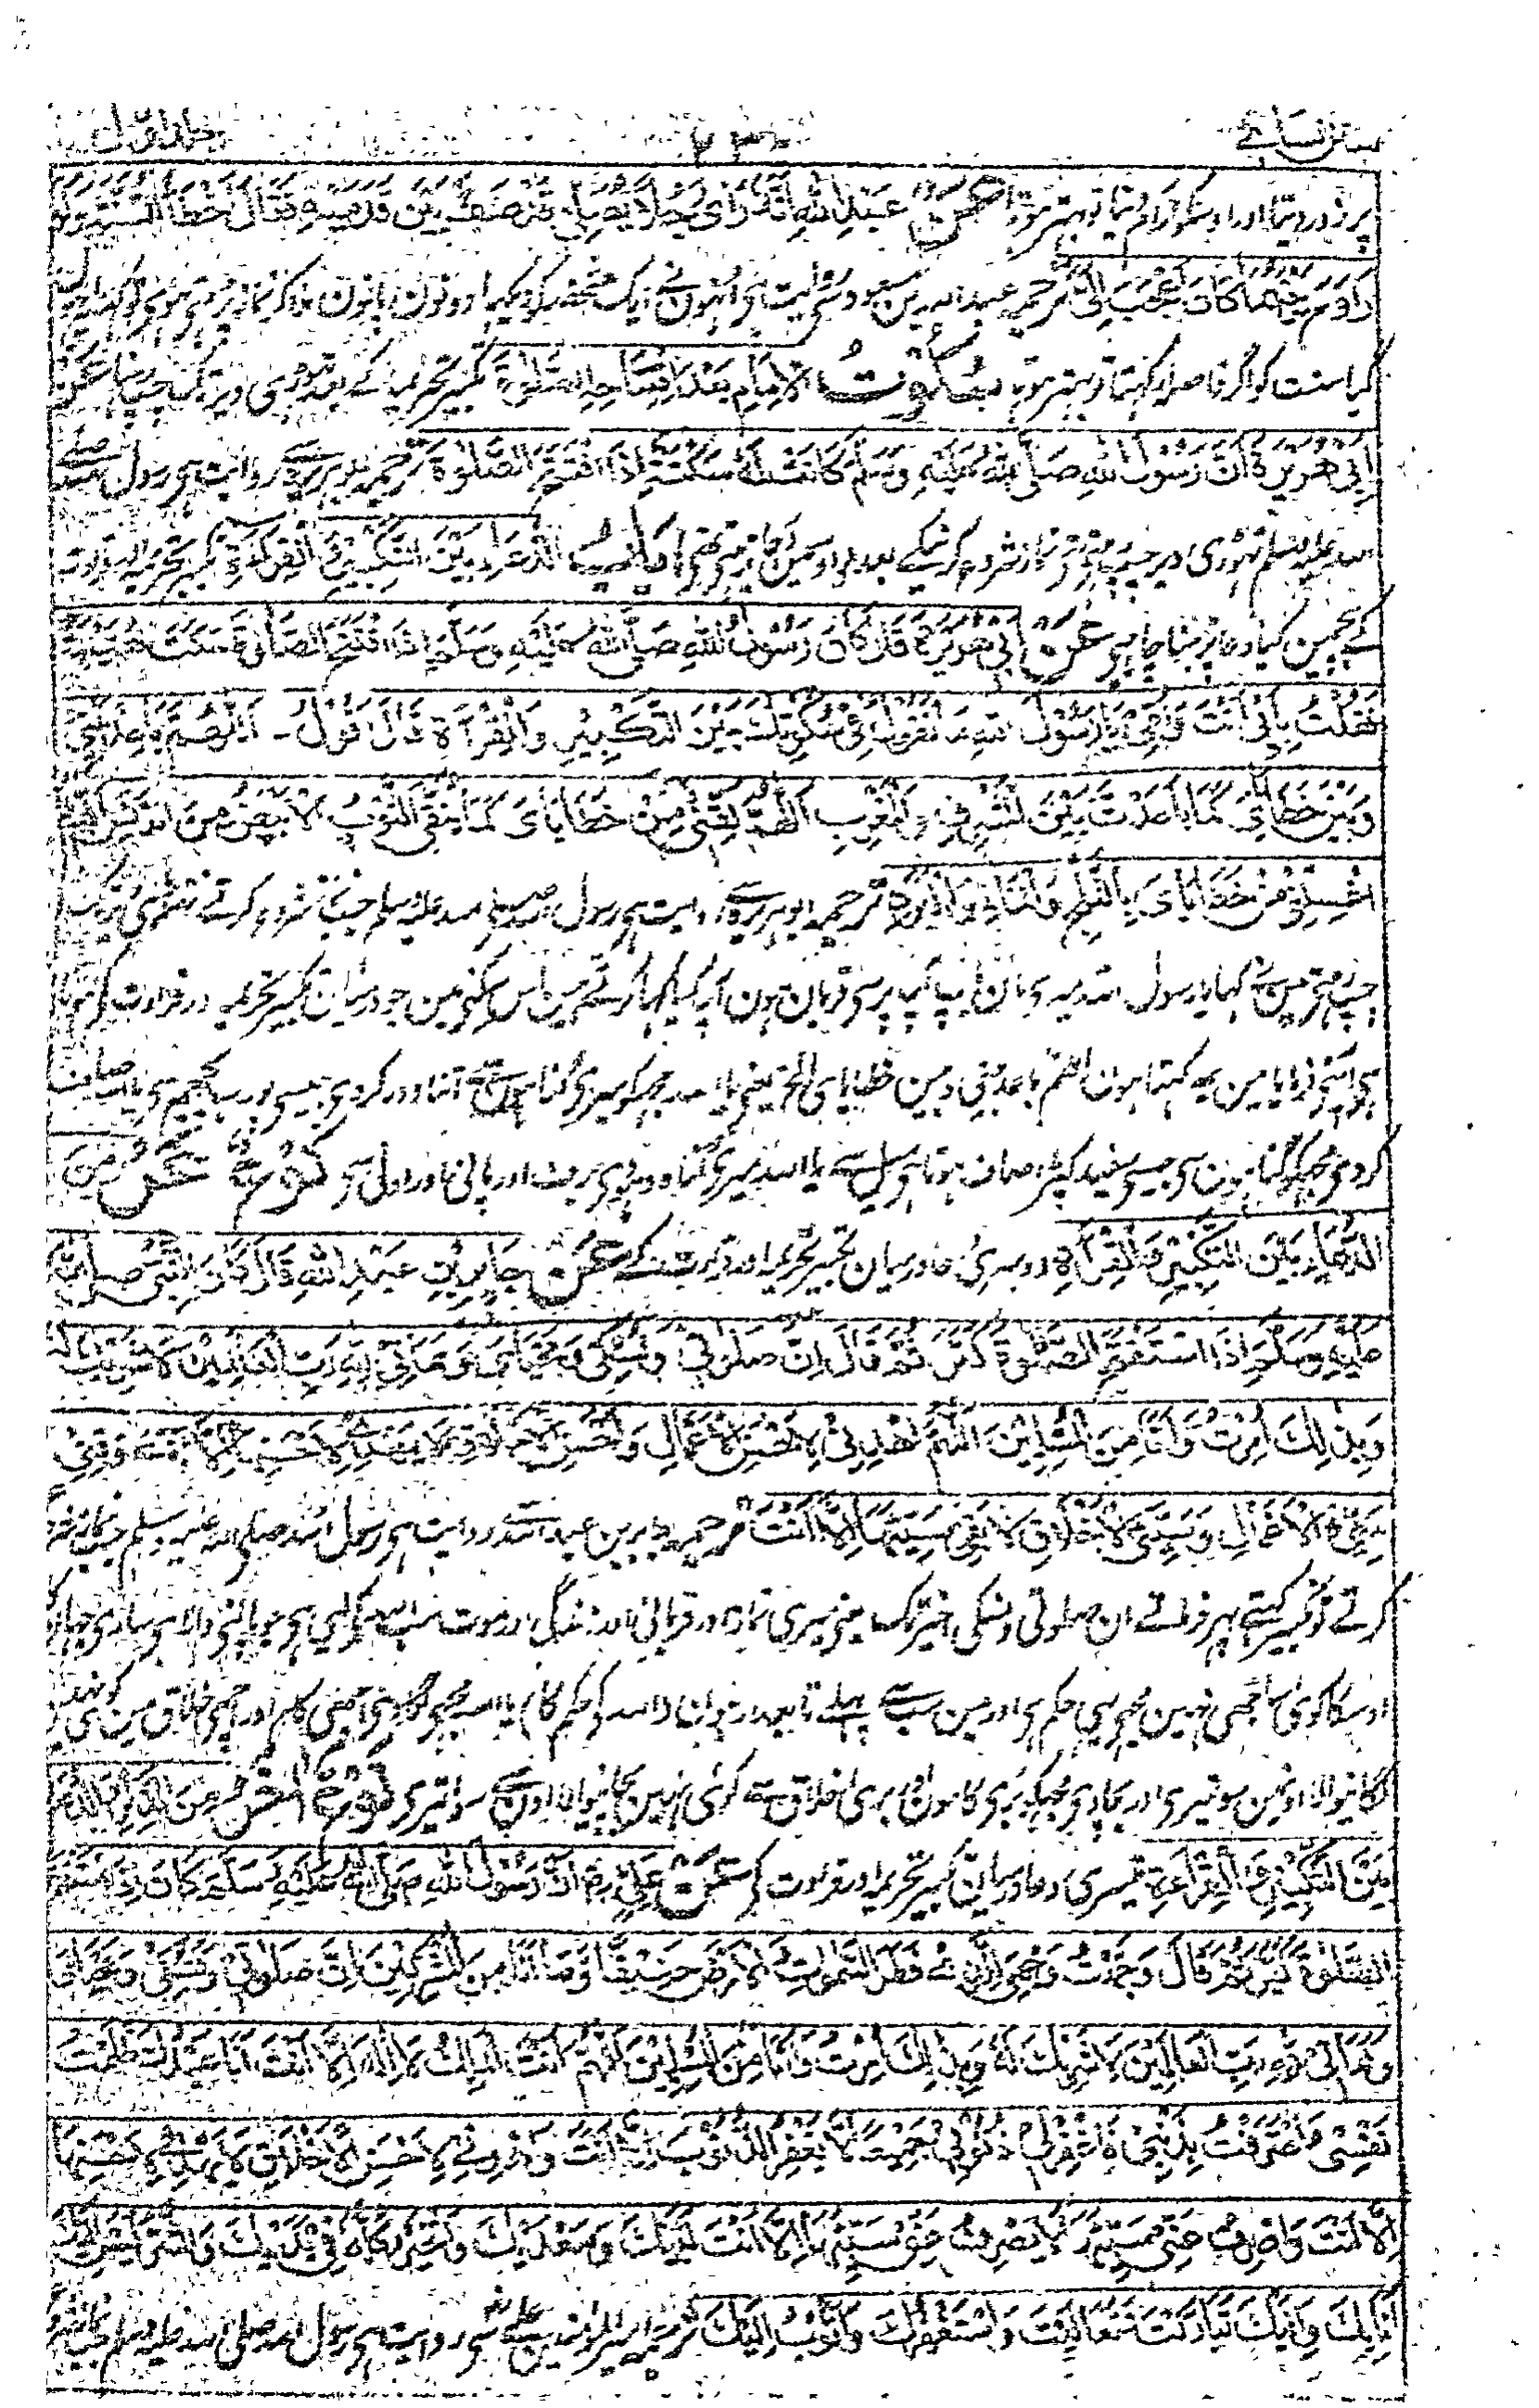 سنن نسائے جلد اول
پر زور دیتا اور اوسکو آرام دیتا تو بہتر ہوتا عَنْ عَبْدِ اللّٰهِ اَنَّهٗ رَأٰى رَجُلًا يُصَلِّيْ قَدْ صَفَّ بَيْنَ قَدَمَيْهِ فَقَالَ اَخْطَأَ السُّنَّةَ وَلَوْ
رَاوَحَ بَيْنَهُمَا كَانَ اَعْجَبَ اِلَيَّ ترجمہ عبد اللہ بن مسعود سے روایت ہی اونہون نے ایک شخص کو دیکھا دونون پانون ملا کر نماز
کیا سنت کو اگر فاصلہ رکھتا تو بہتر ہوتا سُكُوْتُ الْاِمَامِ بَعْدَ افْتِتَاحِهِ الصَّلٰوةَ تکبیر تحریمہ کے بعد تہوڑی دیر تک چپ رہنا عَنْ
اَبِيْ هُرَيْرَةَ اَنَّ رَسُوْلَ اللّٰهِ صَلَّى اللّٰهُ عَلَيْهِ وَسَلَّمَ كَانَتْ لَهٗ سَكْتَةٌ اِذَا افْتَتَحَ الصَّلٰوةَ ترجمہ ابو ہریرہ سے روایت ہی رسول اللہ صلے
اللہ علیہ وسلم تہوڑی دیر چپ رہتے نماز شروع کرنیکے بعد بَابُ الدُّعَاءِ بَيْنَ التَّكْبِيْرِ وَالْقِرَاءَةِ تکبیر تحریمہ اور قراءت
کے بیچ مین کیا دعا پڑہنا چاہیے عَنْ اَبِيْ هُرَيْرَةَ قَالَ كَانَ رَسُوْلُ اللّٰهِ صَلَّى اللّٰهُ عَلَيْهِ وَسَلَّمَ اِذَا افْتَتَحَ الصَّلٰوةَ سَكَتَ هُنَيْهَةً
فَقُلْتُ بِاَبِيْ اَنْتَ وَاُمِّيْ يَا رَسُوْلَ اللّٰهِ مَا تَقُوْلُ فِيْ سُكُوْتِكَ بَيْنَ التَّكْبِيْرِ وَالْقِرَآءَةِ قَالَ اَقُوْلُ اَللّٰهُمَّ بَاعِدْ بَيْنِيْ
وَبَيْنَ خَطَايَايَ كَمَا بَاعَدْتَّ بَيْنَ الْمَشْرِقِ وَالْمَغْرِبِ اَللّٰهُمَّ نَقِّنِيْ مِنْ خَطَايَايَ كَمَا يُنَقَّى الثَّوْبُ الْاَبْيَضُ مِنَ الدَّنَسِ اَللّٰهُمَّ
اغْسِلْنِيْ مِنْ خَطَايَايَ بِالثَّلْجِ وَالْمَاءِ وَالْبَرَدِ ترجمہ ابو ہریرہ سے روایت ہی رسول اللہ صلے اللہ علیہ وسلم جب نماز شروع کرتے تہوڑی دیر تک
چپ رہتے مین نے کہا یا رسول اللہ میری مان باپ آپ پر سی قربان ہون آپ کیا کہا کرتے ہین اس سکتی مین جو درمیان تکبیر تحریمہ اور قراءت کے ہوتا
ہی آپنی فرمایا مین یہ کہتا ہون اللہم باعد بینی و بین خطایای الخ یعنی یا اللہ مجھکو میری گناہون سے اتنا دور کردی جیسی پورب پچہم سی یا اللہ صاف
کردی مجھکو گناہون سی جیسی سفید کپڑا صاف ہوتا ہی میل سے یا اللہ میری گناہ دہو دی برف اور پانی اور اولی سی نَوْعٌ اٰخَرُ مِنَ
الدُّعَاءِ بَيْنَ التَّكْبِيْرِ وَالْقِرَاءَةِ دوسری دعا درمیان تکبیر تحریمہ اور قراءت کے عَنْ جَابِرِ بْنِ عَبْدِ اللّٰهِ قَالَ كَانَ النَّبِيُّ صَلَّى اللّٰهُ
عَلَيْهِ وَسَلَّمَ اِذَا اسْتَفْتَحَ الصَّلٰوةَ كَبَّرَ ثُمَّ قَالَ اِنَّ صَلٰوتِيْ وَنُسُكِيْ وَمَحْيَايَ وَمَمَاتِيْ لِلّٰهِ رَبِّ الْعٰلَمِيْنَ لَا شَرِيْكَ لَهٗ
وَبِذٰلِكَ اُمِرْتُ وَاَنَا مِنَ الْمُسْلِمِيْنَ اَللّٰهُمَّ اهْدِنِيْ لِاَحْسَنِ الْاَعْمَالِ وَاَحْسَنِ الْاَخْلَاقِ لَا يَهْدِيْ لِاَحْسَنِهَا اِلَّا اَنْتَ وَقِنِيْ
سَيِّئَ الْاَعْمَالِ وَسَيِّئَ الْاَخْلَاقِ لَا يَقِيْ سَيِّئَهَا اِلَّا اَنْتَ ترجمہ جابر بن عبد اللہ سے روایت ہی رسول اللہ صلی اللہ علیہ وسلم جب نماز شروع
کرتے تو تکبیر کہتے پہر فرماتے ان صلوتی و نسکی اخیر تک یعنی میری نماز اور قربانی اور زندگی اور موت سب اللہ کو لیے ہی جو پالنے والا ہی ساری جہان کا
اوسکا کوئی ساجھی نہین مجھی یہی حکم ہی اور مین سب سے پہلے تابعدار ہون (اللہ کو حکم کا) یا اللہ مجھی لگادی اچھی کام اور اچھی اخلاق مین کوئی نہین
لگانیوالا اونمین سوا تیری اور بچادی مجھکو بری کامون اور بری اخلاق سے کوئی نہین بچانیوالا اون سے سوا تیری نَوْعٌ اٰخَرُ مِنَ الذِّكْرِ وَالدُّعَاءِ
بَيْنَ التَّكْبِيْرِ وَالْقِرَاءَةِ تیسری دعا درمیان تکبیر تحریمہ اور قراءت کے عَنْ عَلِيٍّ رض اَنَّ رَسُوْلَ اللّٰهِ صَلَّى اللّٰهُ عَلَيْهِ وَسَلَّمَ كَانَ اِذَا اسْتَفْتَحَ
الصَّلٰوةَ كَبَّرَ ثُمَّ قَالَ وَجَّهْتُ وَجْهِيَ لِلَّذِيْ فَطَرَ السَّمٰوٰتِ وَالْاَرْضَ حَنِيْفًا وَّمَا اَنَا مِنَ الْمُشْرِكِيْنَ اِنَّ صَلٰوتِيْ وَنُسُكِيْ وَمَحْيَايَ
وَمَمَاتِيْ لِلّٰهِ رَبِّ الْعَالَمِيْنَ لَا شَرِيْكَ لَهٗ وَبِذٰلِكَ اُمِرْتُ وَاَنَا مِنَ الْمُسْلِمِيْنَ اَللّٰهُمَّ اَنْتَ الْمَلِكُ لَا اِلٰهَ اِلَّا اَنْتَ اَنَا عَبْدُكَ ظَلَمْتُ
نَفْسِيْ وَاعْتَرَفْتُ بِذَنْبِيْ فَاغْفِرْ لِيْ ذُنُوْبِيْ جَمِيْعًا لَا يَغْفِرُ الذُّنُوْبَ اِلَّا اَنْتَ وَاهْدِنِيْ لِاَحْسَنِ الْاَخْلَاقِ لَا يَهْدِيْ لِاَحْسَنِهَا
اِلَّا اَنْتَ وَاصْرِفْ عَنِّيْ سَيِّئَهَا لَا يَصْرِفُ عَنِّيْ سَيِّئَهَا اِلَّا اَنْتَ لَبَّيْكَ وَسَعْدَيْكَ وَالْخَيْرُ كُلُّهٗ فِيْ يَدَيْكَ وَالشَّرُّ لَيْسَ اِلَيْكَ
اَنَا بِكَ وَاِلَيْكَ تَبَارَكْتَ وَتَعَالَيْتَ وَاَسْتَغْفِرُكَ وَاَتُوْبُ اِلَيْكَ ترجمہ امیر المومنین علی سے روایت ہی رسول اللہ صلی اللہ علیہ وسلم جب